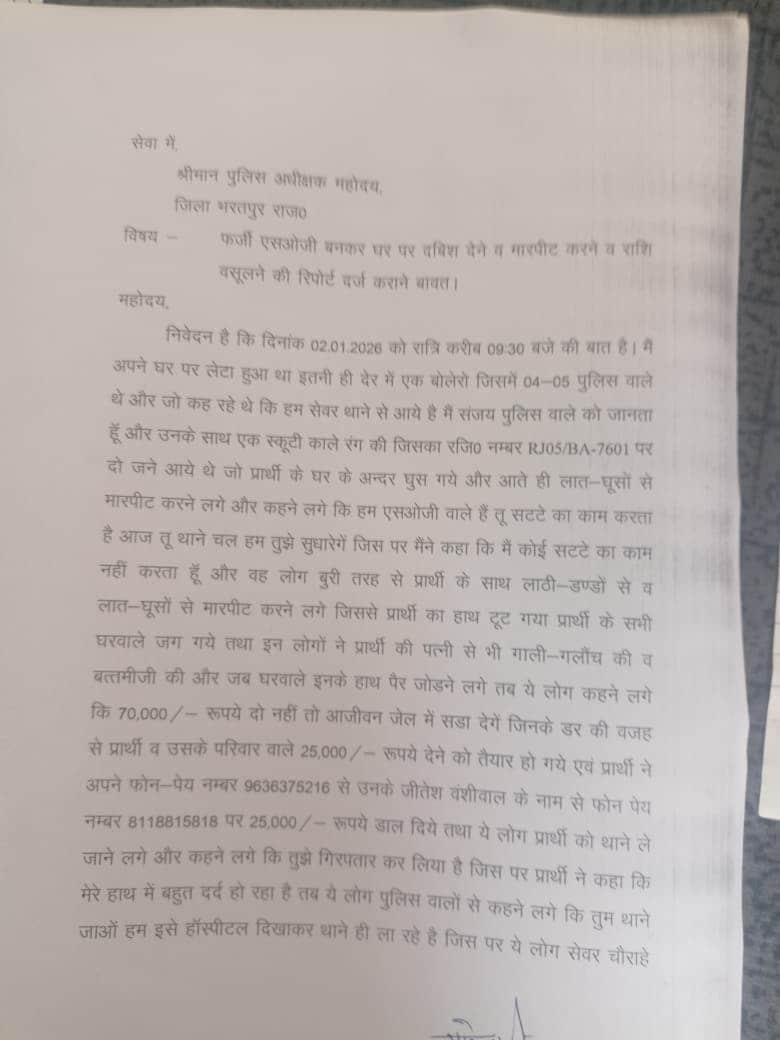 सेवा में,
श्रीमान पुलिस अधीक्षक महोदय,
जिला भरतपुर राज0
विषय – फर्जी एसओजी बनकर घर पर दबिश देने व मारपीट करने व राशि
वसूलने की रिपोर्ट दर्ज कराने बावत।
महोदय,
निवेदन है कि दिनांक 02.01.2026 को रात्रि करीब 09:30 बजे की बात है। मैं
अपने घर पर लेटा हुआ था इतनी ही देर में एक बोलेरो जिसमें 04–05 पुलिस वाले
थे और जो कह रहे थे कि हम सेवर थाने से आये है मैं संजय पुलिस वाले को जानता
हूँ और उनके साथ एक स्कूटी काले रंग की जिसका रजि0 नम्बर RJ05/BA-7601 पर
दो जने आये थे जो प्रार्थी के घर के अन्दर घुस गये और आते ही लात–घूसों से
मारपीट करने लगे और कहने लगे कि हम एसओजी वाले हैं तू सटटे का काम करता
है आज तू थाने चल हम तुझे सुधारेगें जिस पर मैंने कहा कि मैं कोई सटटे का काम
नहीं करता हूँ और वह लोग बुरी तरह से प्रार्थी के साथ लाठी–डण्डों से व
लात–घूसों से मारपीट करने लगे जिससे प्रार्थी का हाथ टूट गया प्रार्थी के सभी
घरवाले जग गये तथा इन लोगों ने प्रार्थी की पत्नी से भी गाली–गलौंच की व
बत्तमीजी की और जब घरवाले इनके हाथ पैर जोडने लगे तब ये लोग कहने लगे
कि 70,000/– रूपये दो नहीं तो आजीवन जेल में सडा देगें जिनके डर की वजह
से प्रार्थी व उसके परिवार वाले 25,000/– रूपये देने को तैयार हो गये एवं प्रार्थी ने
अपने फोन–पेय नम्बर 9636375216 से उनके जीतेश वंशीवाल के नाम से फोन पेय
नम्बर 8118815818 पर 25,000/– रूपये डाल दिये तथा ये लोग प्रार्थी को थाने ले
जाने लगे और कहने लगे कि तुझे गिरपतार कर लिया है जिस पर प्रार्थी ने कहा कि
मेरे हाथ में बहुत दर्द हो रहा है तब ये लोग पुलिस वालों से कहने लगे कि तुम थाने
जाओं हम इसे हॉस्पीटल दिखाकर थाने ही ला रहे है जिस पर ये लोग सेवर चौराहे